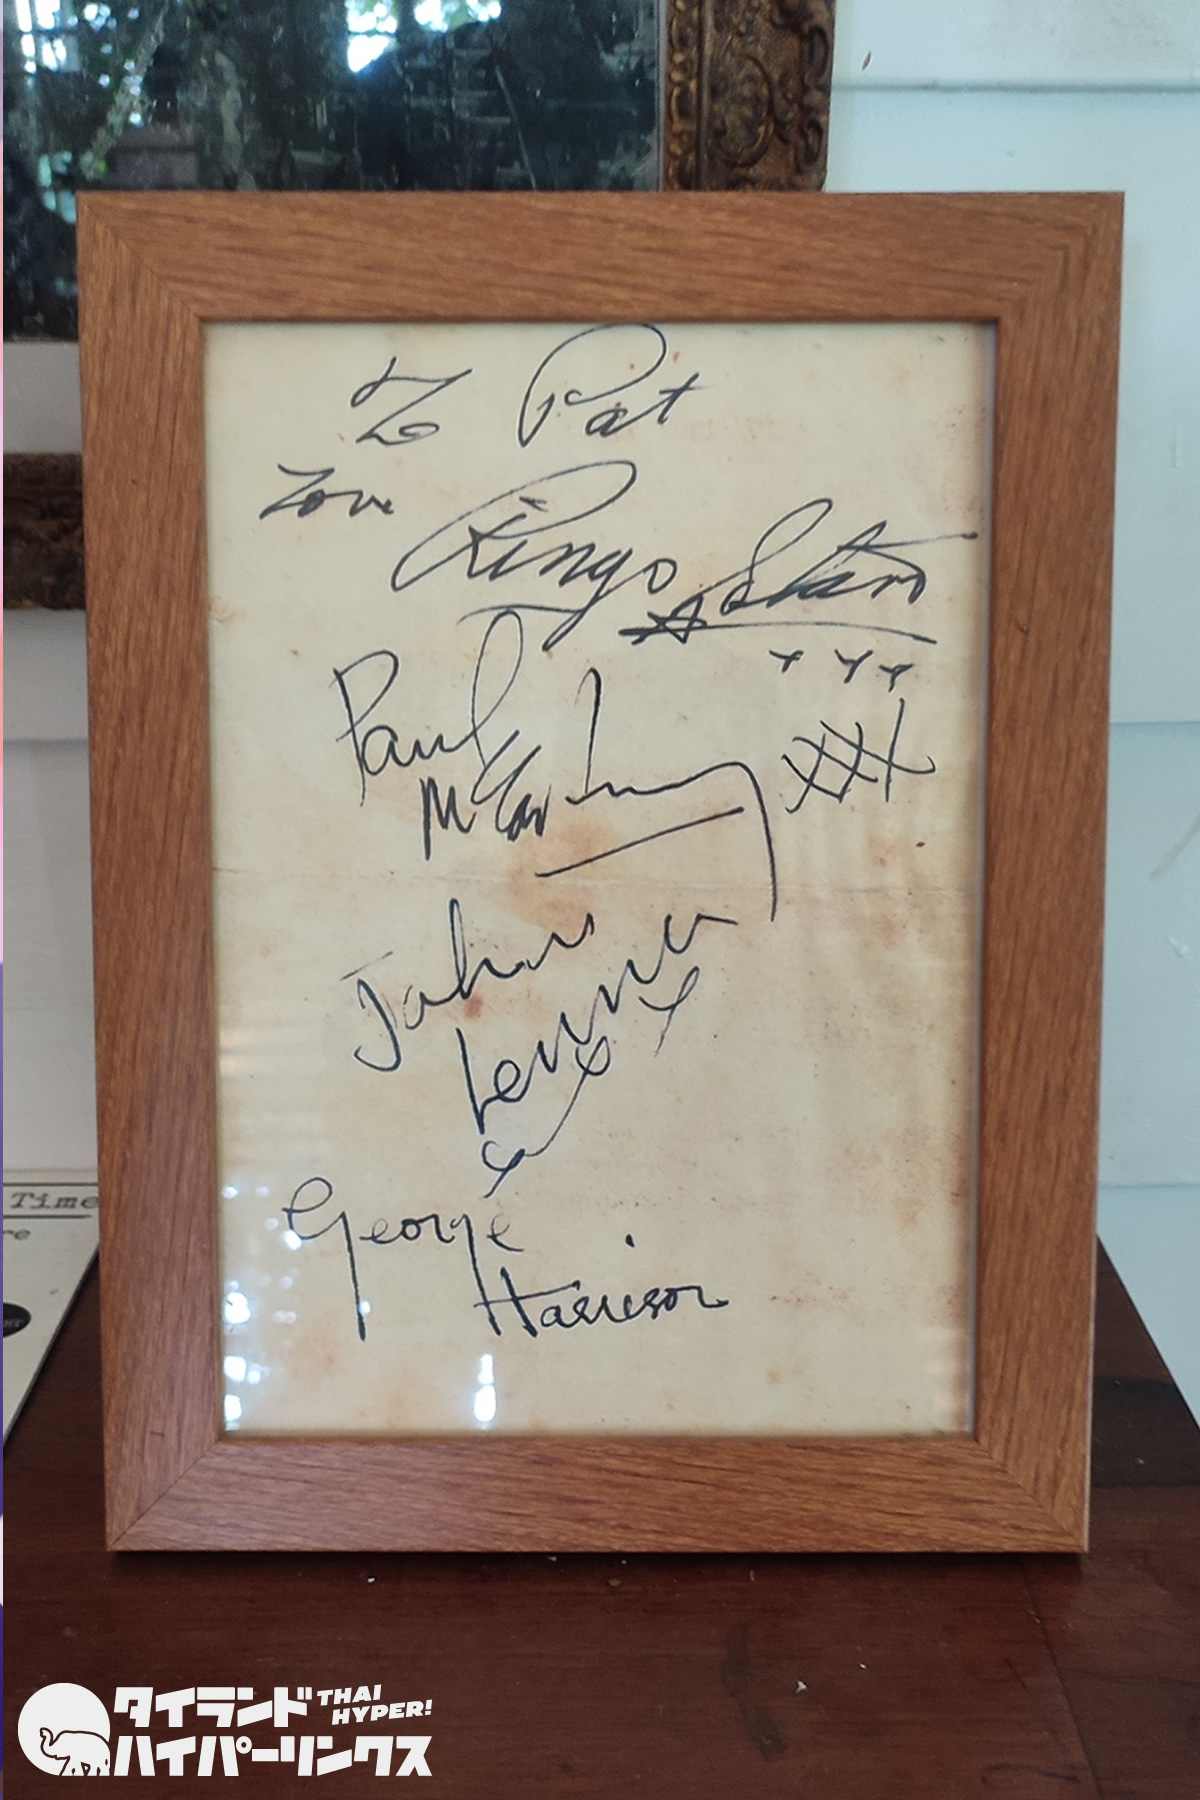 To Pat
Love Ringo Starr
xxx
Paul
McCartney xxx
John
Lennon
x x x
George
Harrison
Time
re
タイランド THAI
HYPER!
ハイパーリンクス